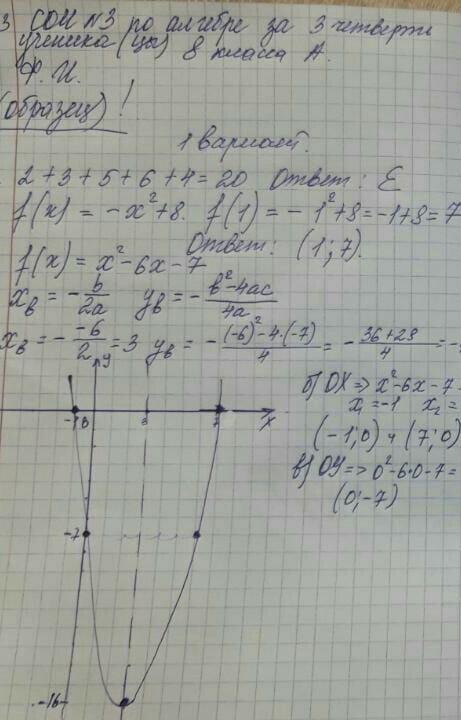 3 СОИ №3 по алгебре за 3 четверти
ученика (цы) 8 класса А.
Ф. И.
(образец)!
1 вариант.
2+3+5+6+4=20 Ответ: Е
f(x) = -x²+8. f(1) = -1²+8=-1+8=7
Ответ: (1;7).
f(x) = x²-6x-7
xв = -b/2a yв = -b²-4ac/4a
xв = - -6/2 = 3 yв = -(-6)²-4·(-7)/4 = -36+28/4 = -
y
б) OX => x²-6x-7
x₁ = -1 x₂ =
(-1;0) и (7;0)
в) OY => 0²-6·0-7=
(0;-7)
-1 0 3 7 x
-7
-16